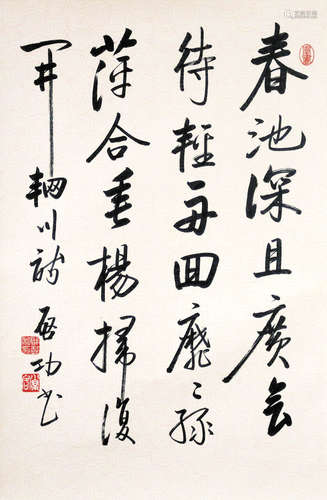 春池深且廣會
待輕舟回靡〻綠
萍合垂楊掃復
開輞川詩啟功書